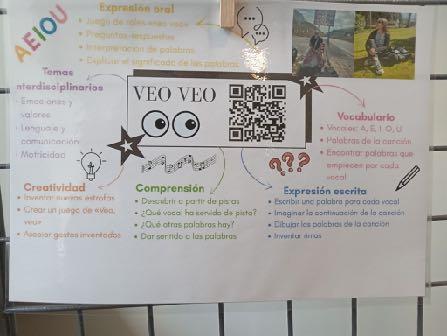 AEIOU
Expresión oral
• Juego de roles «veo veo»
• Preguntas-respuestas
• Interpretación de palabras
• Explicar el significado de las palabras
Temas
interdisciplinarios
- Emociones y
valores
- Lenguaje y
comunicación
- Motricidad
VEO VEO
Vocabulario
• Vocales: A, E, I, O, U
• Palabras de la canción
• Encontrar palabras que
empiecen por cada
vocal
Creatividad
• Inventar nuevas estrofas
• Crear un juego de «Veo,
veo»
• Asociar gestos inventados
Comprensión
• Descubrir a partir de pistas
• ¿Qué vocal ha servido de pista?
• ¿Qué otras palabras hay?
• Dar sentido a las palabras
???
Expresión escrita
• Escribir una palabra para cada vocal
• Imaginar la continuación de la canción
• Dibujar las palabras de la canción
• Inventar rimas